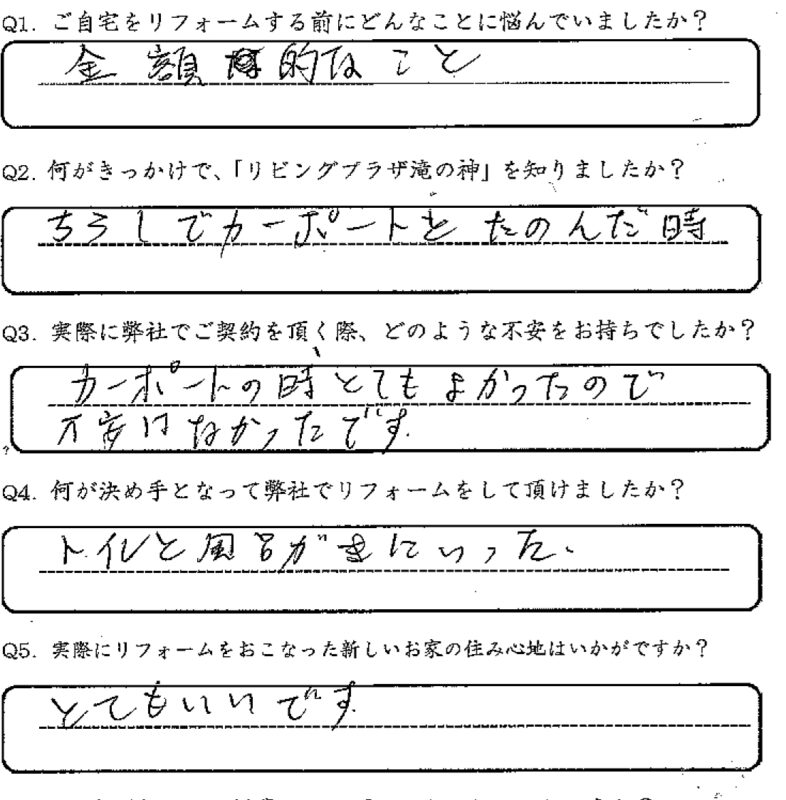 Q1. ご自宅をリフォームする前にどんなことに悩んでいましたか？
金額的なこと
Q2. 何がきっかけで、「リビングプラザ滝の神」を知りましたか？
ちらしでカーポートとたのんだ時
Q3. 実際に弊社でご契約を頂く際、どのような不安をお持ちでしたか？
カーポートの時とてもよかったので
不安はなかったです。
Q4. 何が決め手となって弊社でリフォームをして頂けましたか？
トイレと風呂がきにいった、
Q5. 実際にリフォームをおこなった新しいお家の住み心地はいかがですか？
とてもいいです